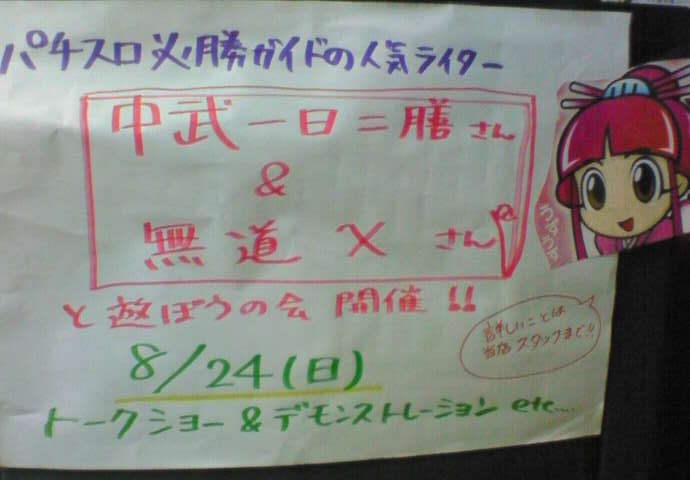 パチスロ必勝ガイドの人気ライター
中武一日二膳さん
&
無道Xさん
と遊ぼうの会 開催!!
詳しいことは
当店スタッフまで!!
8/24(日)
トークショー&デモンストレーション etc....